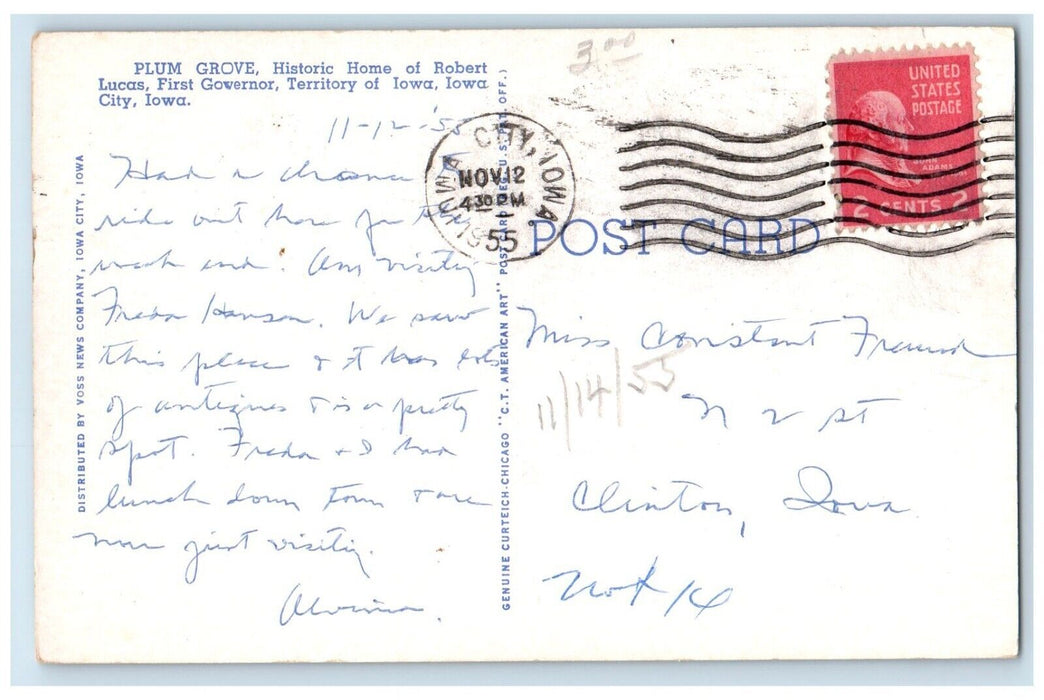 PLUM GROVE, Historic Home of Robert
Lucas, First Governor, Territory of Iowa, Iowa
City, Iowa.
11-12-'55
Had a chance
ride out here for the
week end. Am visiting
Freda Hansen. We saw
this place & it has lots
of antiques & is a pretty
spot. Freda & I had
lunch down town & are
now just visiting.
Alvina.
DISTRIBUTED BY VOSS NEWS COMPANY, IOWA CITY, IOWA
GENUINE CURTEICH-CHICAGO "C.T. AMERICAN ART" POST CARD (REG. U.S. PAT. OFF.)
3.00
IOWA CITY, IOWA
NOV 12
4 30 PM
55
UNITED
STATES
POSTAGE
JOHN
ADAMS
2 CENTS 2
POST CARD
Miss Constant
11/14/55
N 2 St
Clinton, Iowa